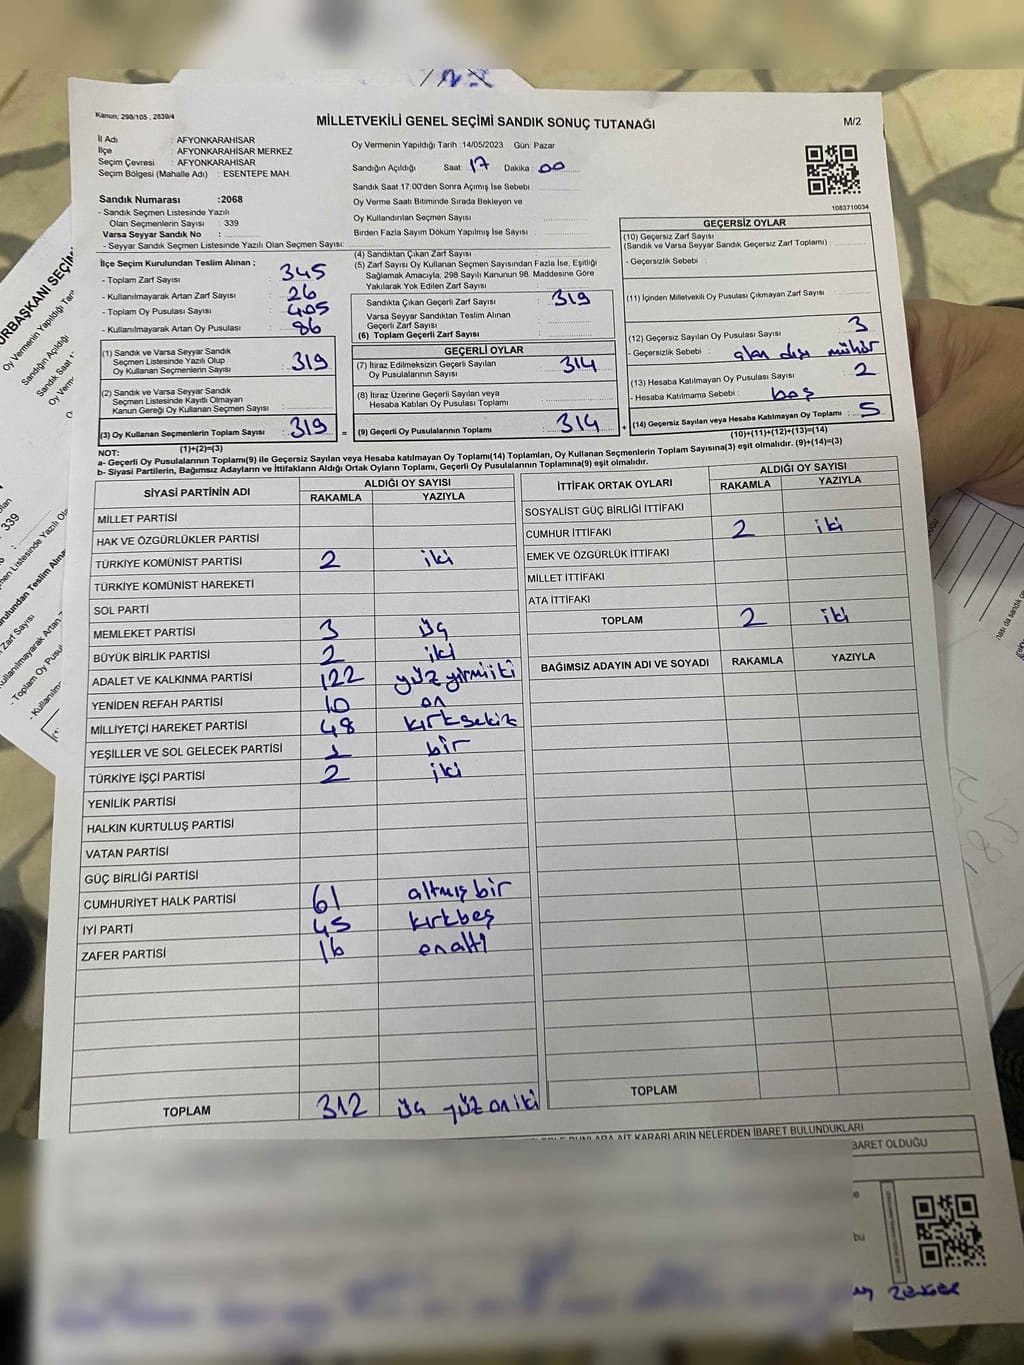 Kanun: 298/105 , 2839/4
MİLLETVEKİLİ GENEL SEÇİMİ SANDIK SONUÇ TUTANAĞI
M/2
İl Adı : AFYONKARAHİSAR
İlçe : AFYONKARAHİSAR MERKEZ
Seçim Çevresi : AFYONKARAHİSAR
Seçim Bölgesi (Mahalle Adı) : ESENTEPE MAH.
Oy Vermenin Yapıldığı Tarih : 14/05/2023 Gün: Pazar
Sandığın Açıldığı Saat : 17 Dakika : 00
Sandık Saat 17:00'den Sonra Açımış İse Sebebi :
Oy Verme Saati Bitiminde Sırada Bekleyen ve
Oy Kullandırılan Seçmen Sayısı :
Birden Fazla Sayım Döküm Yapılmış İse Sayısı :
1083710034
Sandık Numarası : 2068
- Sandık Seçmen Listesinde Yazılı
Olan Seçmenlerin Sayısı : 339
Varsa Seyyar Sandık No :
- Seyyar Sandık Seçmen Listesinde Yazılı Olan Seçmen Sayısı:
İlçe Seçim Kurulundan Teslim Alınan ;
- Toplam Zarf Sayısı : 345
- Kullanılmayarak Artan Zarf Sayısı : 26
- Toplam Oy Pusulası Sayısı : 405
- Kullanılmayarak Artan Oy Pusulası : 86
(1) Sandık ve Varsa Seyyar Sandık
Seçmen Listesinde Yazılı Olup
Oy Kullanan Seçmenlerin Sayısı : 319
(2) Sandık ve Varsa Seyyar Sandık
Seçmen Listesinde Kayıtlı Olmayan
Kanun Gereği Oy Kullanan Seçmen Sayısı :
(3) Oy Kullanan Seçmenlerin Toplam Sayısı : 319
(1)+(2)=(3)
(4) Sandıktan Çıkan Zarf Sayısı :
(5) Zarf Sayısı Oy Kullanan Seçmen Sayısından Fazla İse, Eşitliği
Sağlamak Amacıyla, 298 Sayılı Kanunun 98. Maddesine Göre
Yakılarak Yok Edilen Zarf Sayısı :
Sandıkta Çıkan Geçerli Zarf Sayısı : 319
Varsa Seyyar Sandıktan Teslim Alınan
Geçerli Zarf Sayısı :
(6) Toplam Geçerli Zarf Sayısı :
GEÇERLİ OYLAR
(7) İtiraz Edilmeksizin Geçerli Sayılan
Oy Pusulalarının Sayısı : 314
(8) İtiraz Üzerine Geçerli Sayılan veya
Hesaba Katılan Oy Pusulası Toplamı :
= (9) Geçerli Oy Pusulalarının Toplamı : 314 +
GEÇERSİZ OYLAR
(10) Geçersiz Zarf Sayısı
(Sandık ve Varsa Seyyar Sandık Geçersiz Zarf Toplamı) :
- Geçersizlik Sebebi :
(11) İçinden Milletvekili Oy Pusulası Çıkmayan Zarf Sayısı :
(12) Geçersiz Sayılan Oy Pusulası Sayısı : 3
- Geçersizlik Sebebi : alan dışı mühür
(13) Hesaba Katılmayan Oy Pusulası Sayısı : 2
- Hesaba Katılmama Sebebi : boş
(14) Geçersiz Sayılan veya Hesaba Katılmayan Oy Toplamı : 5
(10)+(11)+(12)+(13)=(14)
NOT:
a- Geçerli Oy Pusulalarının Toplamı(9) ile Geçersiz Sayılan veya Hesaba katılmayan Oy Toplamı(14) Toplamları, Oy Kullanan Seçmenlerin Toplam Sayısına(3) eşit olmalıdır. (9)+(14)=(3)
b- Siyasi Partilerin, Bağımsız Adayların ve İttifakların Aldığı Ortak Oyların Toplamı, Geçerli Oy Pusulalarının Toplamına(9) eşit olmalıdır.
SİYASİ PARTİNİN ADI ALDIĞI OY SAYISI
RAKAMLA YAZIYLA
MİLLET PARTİSİ
HAK VE ÖZGÜRLÜKLER PARTİSİ
TÜRKİYE KOMÜNİST PARTİSİ 2 iki
TÜRKİYE KOMÜNİST HAREKETİ
SOL PARTİ
MEMLEKET PARTİSİ 3 üç
BÜYÜK BİRLİK PARTİSİ 2 iki
ADALET VE KALKINMA PARTİSİ 122 yüz yirmiiki
YENİDEN REFAH PARTİSİ 10 on
MİLLİYETÇİ HAREKET PARTİSİ 48 kırksekiz
YEŞİLLER VE SOL GELECEK PARTİSİ 1 bir
TÜRKİYE İŞÇİ PARTİSİ 2 iki
YENİLİK PARTİSİ
HALKIN KURTULUŞ PARTİSİ
VATAN PARTİSİ
GÜÇ BİRLİĞİ PARTİSİ
CUMHURİYET HALK PARTİSİ 61 altmış bir
İYİ PARTİ 45 kırkbeş
ZAFER PARTİSİ 16 onaltı
TOPLAM 312 üç yüz on iki
İTTİFAK ORTAK OYLARI ALDIĞI OY SAYISI
RAKAMLA YAZIYLA
SOSYALİST GÜÇ BİRLİĞİ İTTİFAKI
CUMHUR İTTİFAKI 2 iki
EMEK VE ÖZGÜRLÜK İTTİFAKI
MİLLET İTTİFAKI
ATA İTTİFAKI
TOPLAM 2 iki
BAĞIMSIZ ADAYIN ADI VE SOYADI RAKAMLA YAZIYLA
TOPLAM
AİT KARARLARIN NELERDEN İBARET BULUNDUKLARI
BARET OLDUĞU